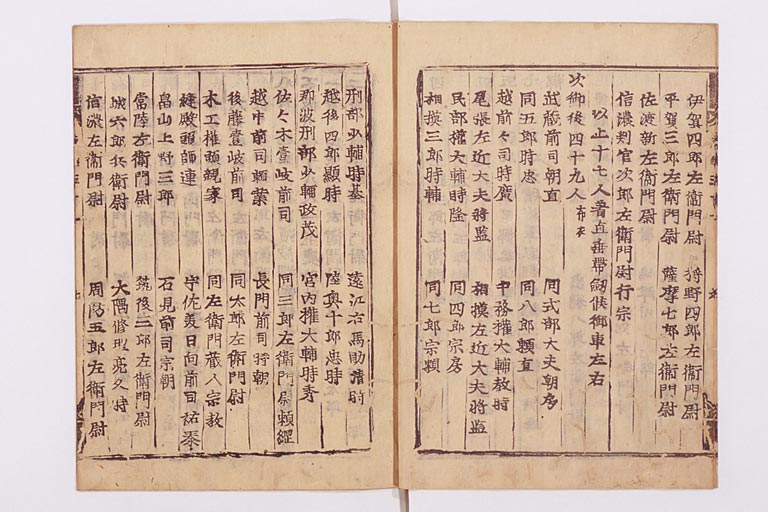 伊賀四郎左衛門尉 狩野四郎左衛門尉
平賀三郎左衛門尉 薩摩七郎左衛門尉
佐渡新左衛門尉
信濃判官次郎左衛門尉行宗
以上十七人著直垂帯劔候御車左右
次御後四十九人 布衣
越前前司時廣 中務権大輔教時
同五郎時忠 同八郎頼直
尾張左近大夫将監 相摸左近大夫将監
民部権大輔時隆 同四郎宗房
相摸三郎時輔 同七郎宗頼
刑部少輔時基 遠江右馬助清時
越後四郎顕時 陸奥十郎忠時
那波刑部少輔政茂 宮内権大輔時秀
佐々木壹岐前司 同三郎左衛門尉頼經
越中前司頼業 長門前司時朝
後藤壹岐前司 同太郎左衛門尉
木工権頭親家 同左衛門蔵人宗教
縫殿頭師連 宇佐美日向前司祐泰
畠山上野三郎 石見前司宗朝
常陸左衛門尉 筑後三郎左衛門尉
城六郎兵衛尉 大隅修理亮久時
信濃左衛門尉 周防五郎左衛門尉